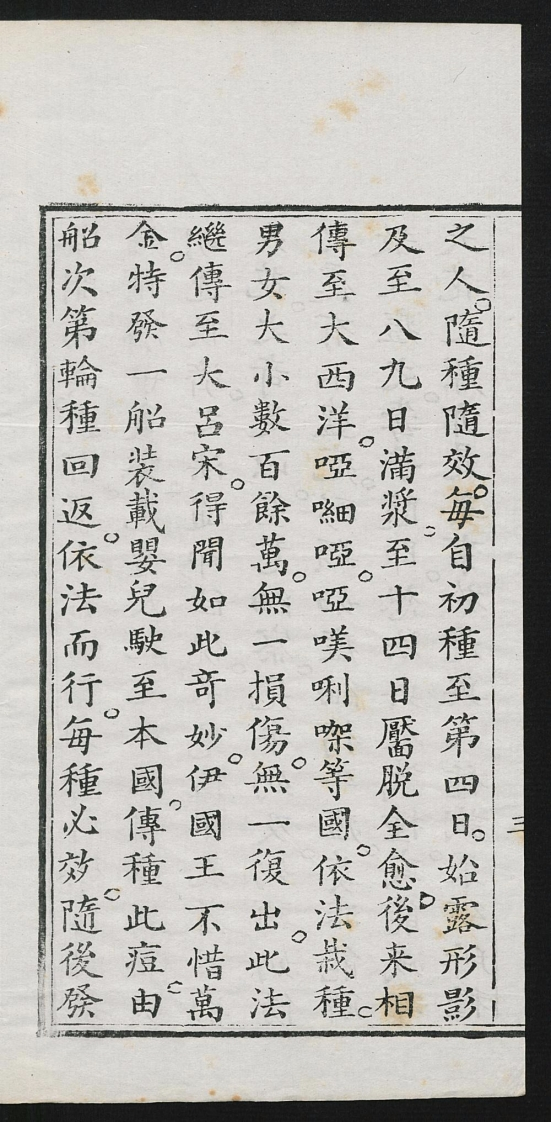 之人。隨種隨效。每自初種至第四日。始露形影
及至八九日滿漿。至十四日靨脫全愈。後来相
傳至大西洋。啞㘓啞。啞㗖唎㗎等國。依法栽種。
男女大小數百餘萬。無一損傷。無一復出。此法
繼傳至大呂宋。得聞如此奇妙。伊國王不惜萬
金。特發一船装載嬰兒駛至本國。傳種此痘。由
船次第輪種回返。依法而行。每種必效。隨後發
三